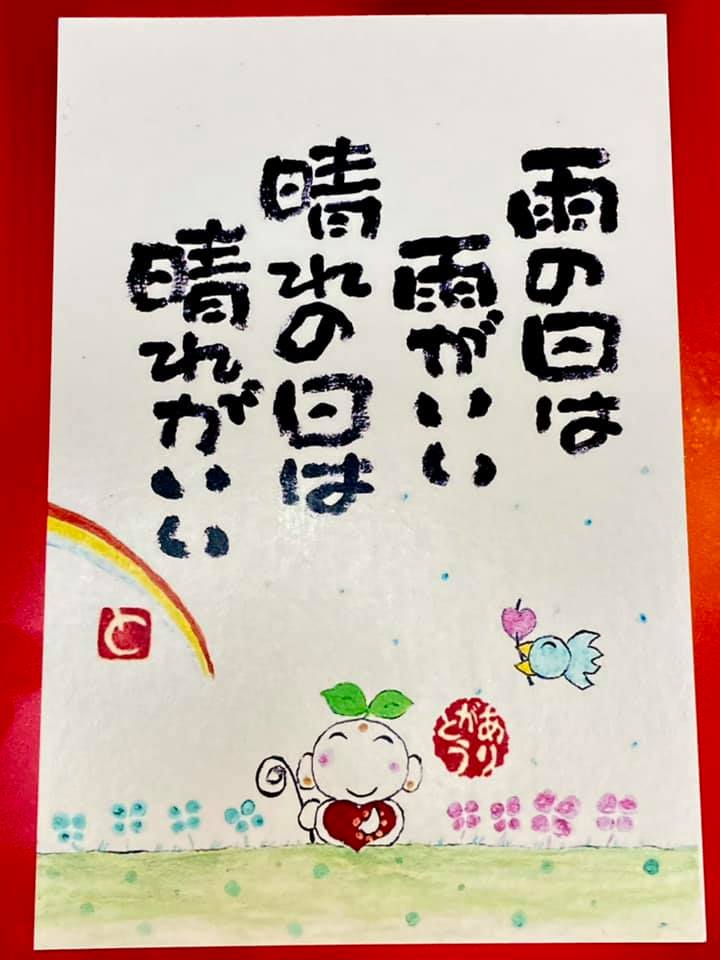 雨の日は
雨がいい
晴れの日は
晴れがいい
ありがとう
と